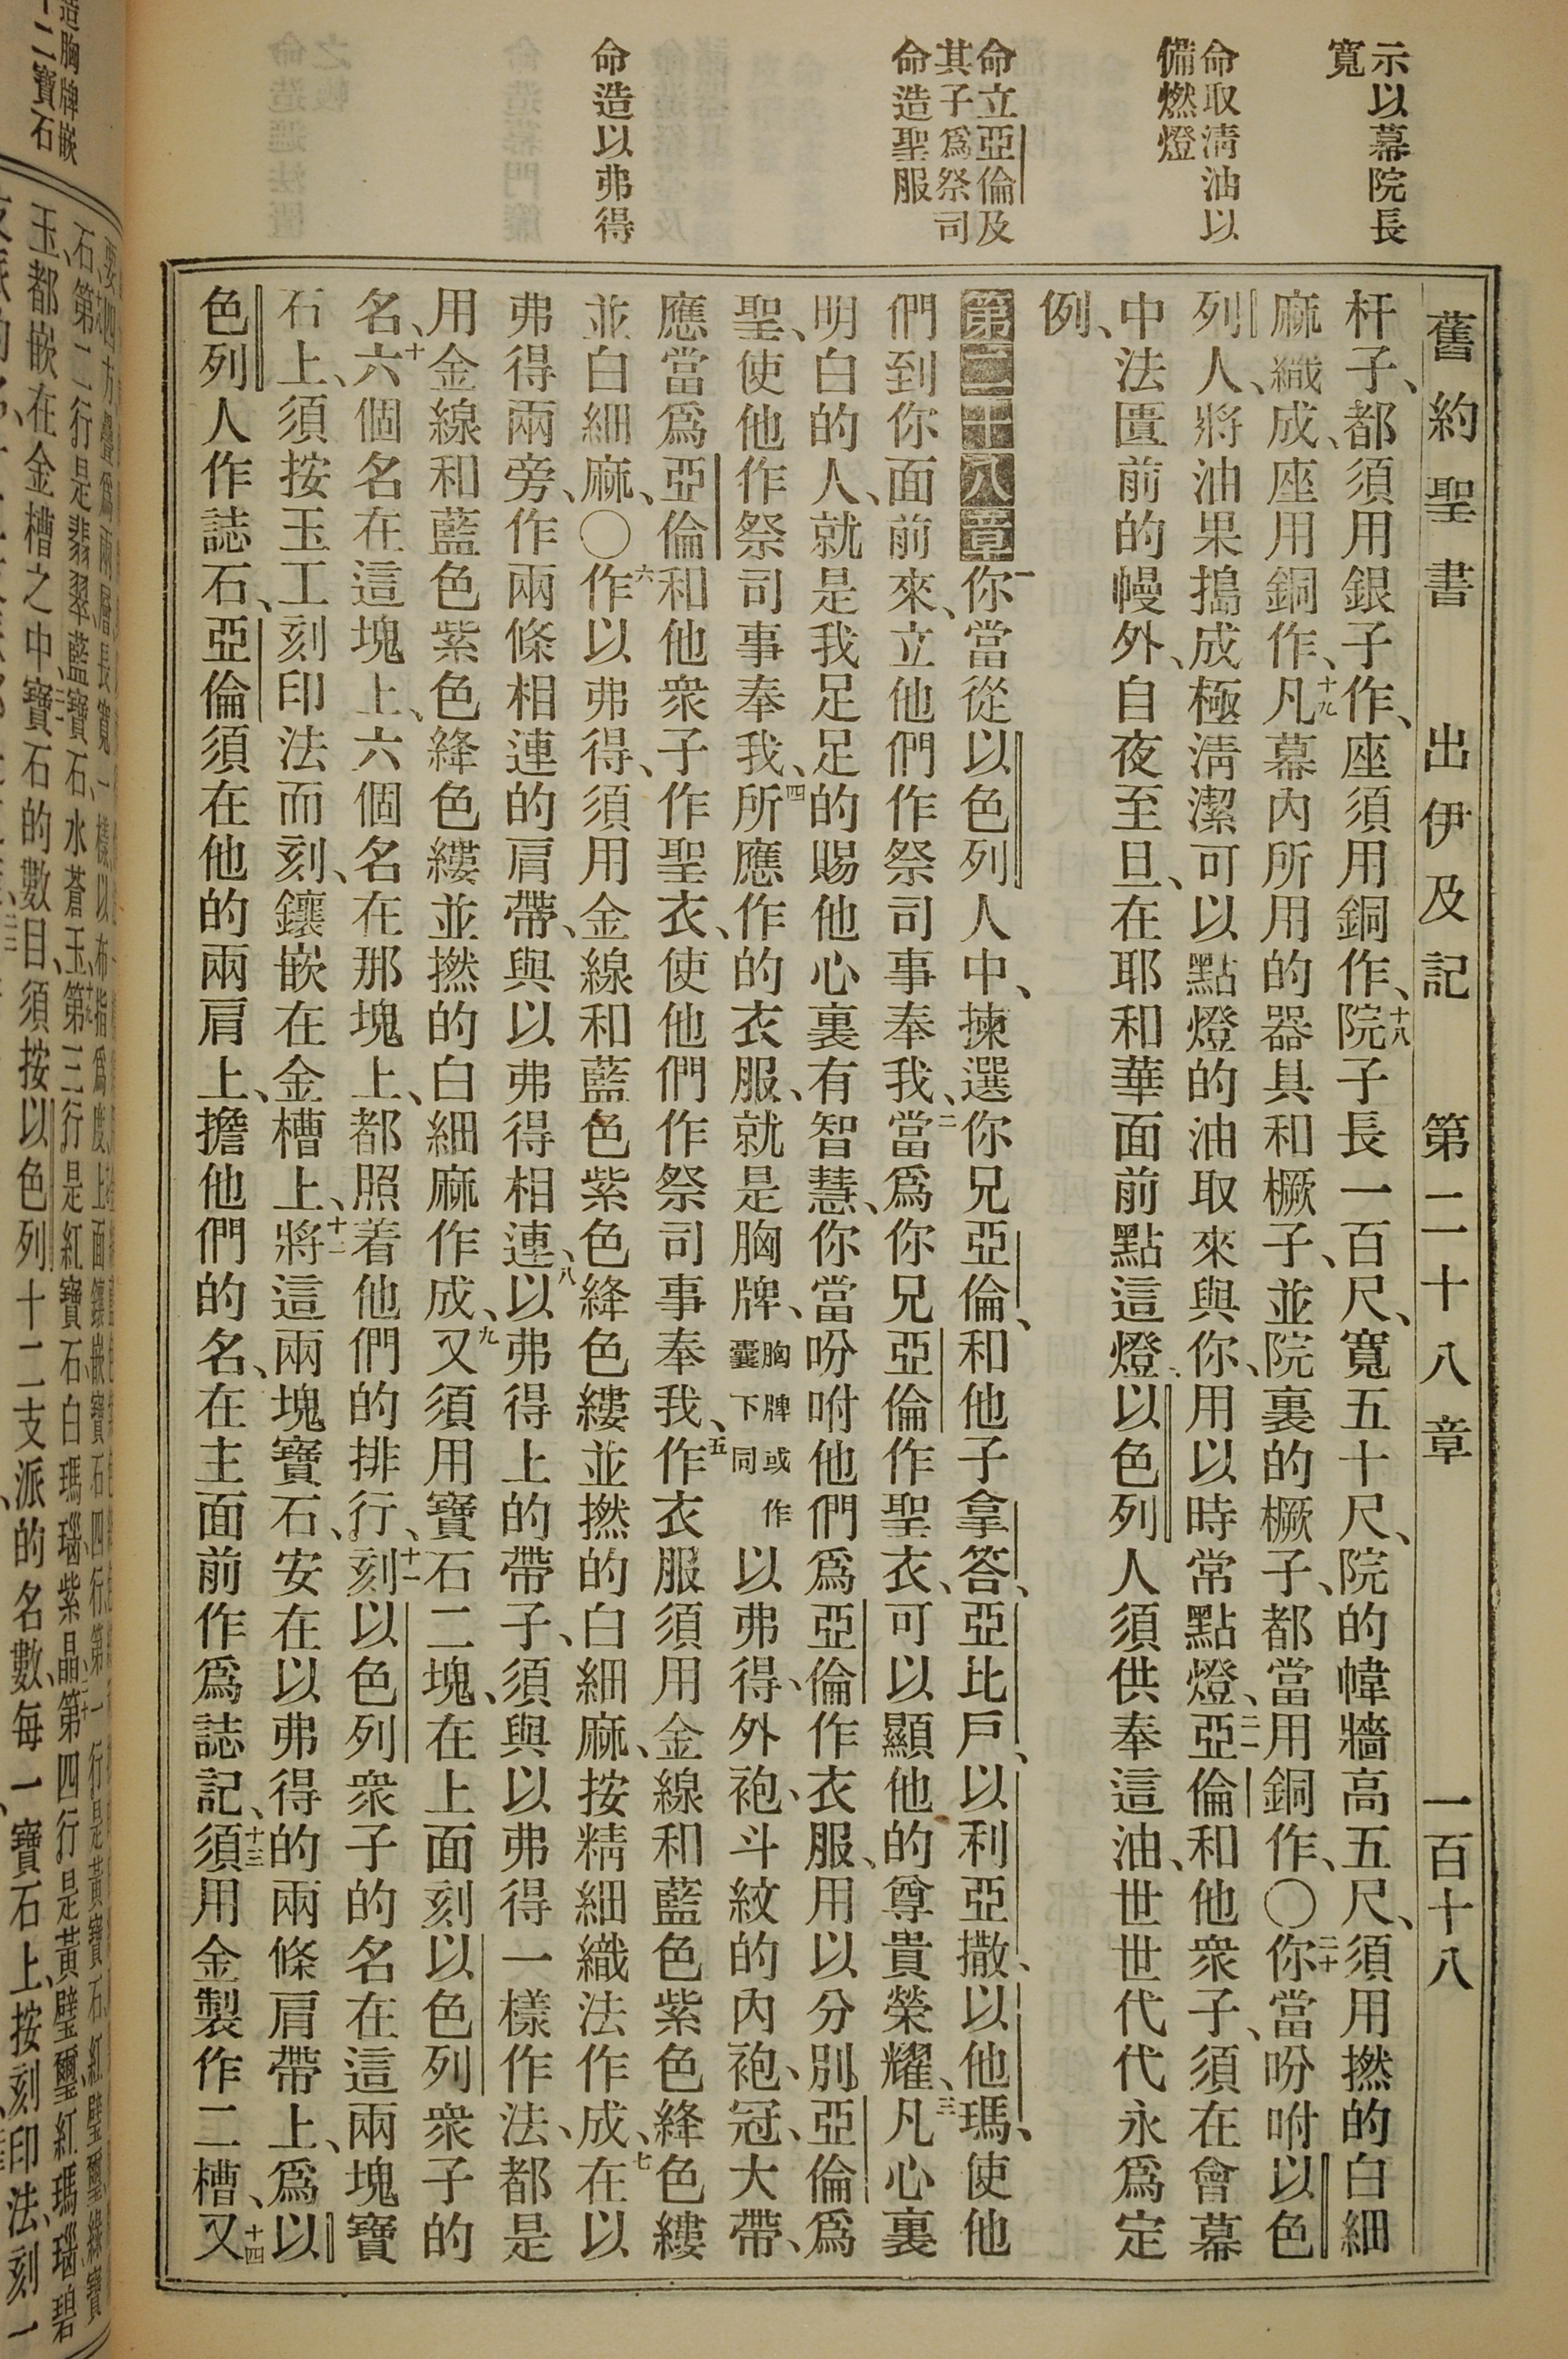 示以幕院長
寬
命取清油以
備燃燈
命立亞倫及
其子爲祭司
命造聖服
命造以弗得
舊約聖書 出伊及記 第二十八章 一百十八
杆子、都須用銀子作、座須用銅作、十八院子長一百尺、寬五十尺、院的幃牆高五尺、須用撚的白細
麻織成、座用銅作、十九凡幕內所用的器具和橛子、並院裏的橛子、都當用銅作、〇二十你當吩咐以色
列人、將油果搗成極淸潔可以點燈的油取來與你、用以時常點燈、二一亞倫和他衆子、須在會幕
中法匱前的幔外、自夜至旦、在耶和華面前點這燈、以色列人須供奉這油、世世代代永爲定
例、
第二十八章 一你當從以色列人中、揀選你兄亞倫、和他子拿答、亞比戶、以利亞撒、以他瑪、使他
們到你面前來、立他們作祭司事奉我、二當爲你兄亞倫作聖衣、可以顯他的尊貴榮耀、三凡心裏
明白的人、就是我足足的賜他心裏有智慧、你當吩咐他們爲亞倫作衣服、用以分別亞倫爲
聖、使他作祭司事奉我、四所應作的衣服、就是胸牌、胸牌或作囊下同以弗得、外袍、斗紋的內袍、冠、大帶、
應當爲亞倫和他衆子作聖衣、使他們作祭司事奉我、五作衣服須用金線和藍色紫色絳色縷
並白細麻、〇六作以弗得、須用金線和藍色紫色絳色縷並撚的白細麻、按精細織法作成、七在以
弗得兩旁、作兩條相連的肩帶、與以弗得相連、八以弗得上的帶子、須與以弗得一樣作法、都是
用金線和藍色紫色絳色縷並撚的白細麻作成、九又須用寶石二塊、在上面刻以色列衆子的
名、十六個名在這塊上、六個名在那塊上、都照着他們的排行、十一刻以色列衆子的名在這兩塊寶
石上、須按玉工刻印法而刻、鑲嵌在金槽上、十二將這兩塊寶石、安在以弗得的兩條肩帶上、爲以
色列人作誌石、亞倫須在他的兩肩上、擔他們的名、在主面前作爲誌記、十三須用金製作二槽、十四又
造胸牌嵌
十二寶石
石、第二行是翡翠、藍寶石、水蒼玉、十九第三行是紅寶石白瑪瑙紫晶、二十第四行是黃璧璽紅瑪瑙碧
玉、都嵌在金槽之中、二一寶石的數目、須按以色列十二支派的名數、每一寶石上、按刻印法、刻一